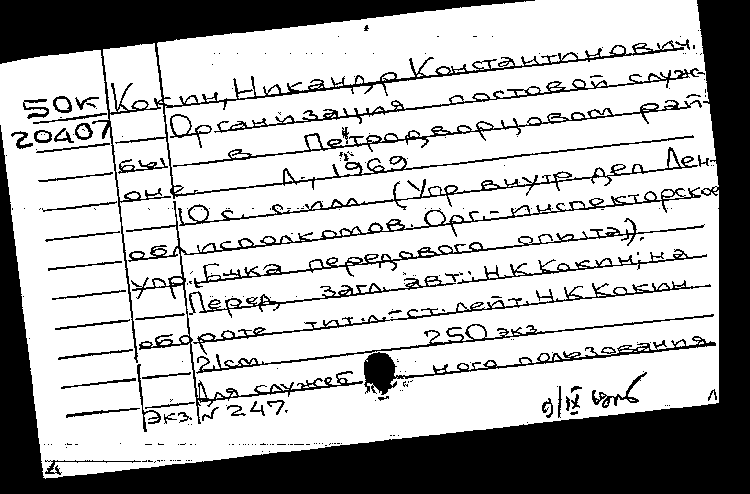 50к Кокин, Никандр Константинович.
20407 Организация постовой служ-
бы в Петродворцовом рай-
оне. Л., 1969
10 с. с илл. (Упр. внутр. дел Лен-
облисполкомов. Орг.-инспекторское
упр. Б-чка передового опыта).
Перед загл. авт.: Н.К Кокин; на
обороте тит. л. - ст. лейт. Н.К Кокин.
21см. 250 экз.
Для служебного пользования.
Экз. N 247.
9/IX